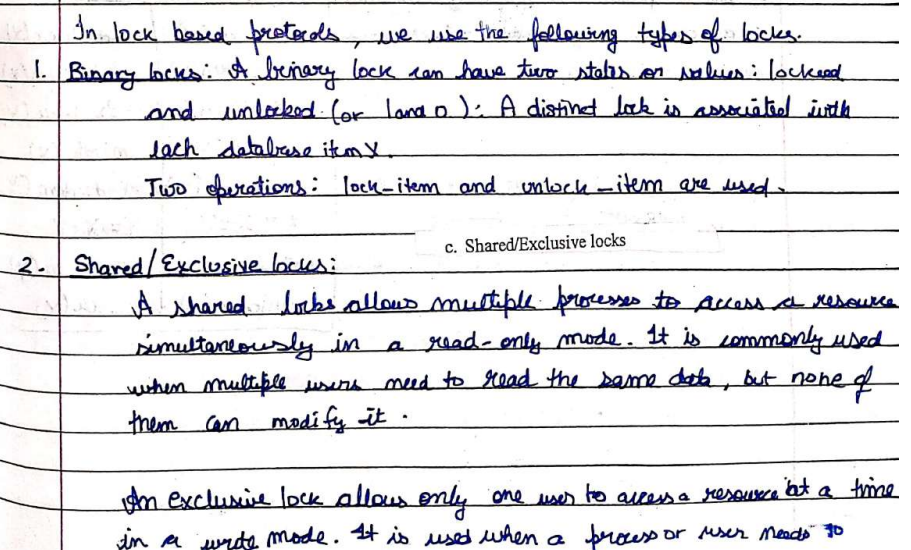 In lock based protocols, we use the following types of locks.
1. Binary locks: A binary lock can have two states or values: locked
and unlocked (or 1 and 0): A distinct lock is associated with
each database item X.
Two operations: lock-item and unlock-item are used.
c. Shared/Exclusive locks
2. Shared/Exclusive locks:
A shared locks allows multiple processes to access a resource
simultaneously in a read-only mode. It is commonly used
when multiple users need to read the same data, but none of
them can modify it.
An exclusive lock allows only one user to access a resource at a time
in a write mode. It is used when a process or user needs to